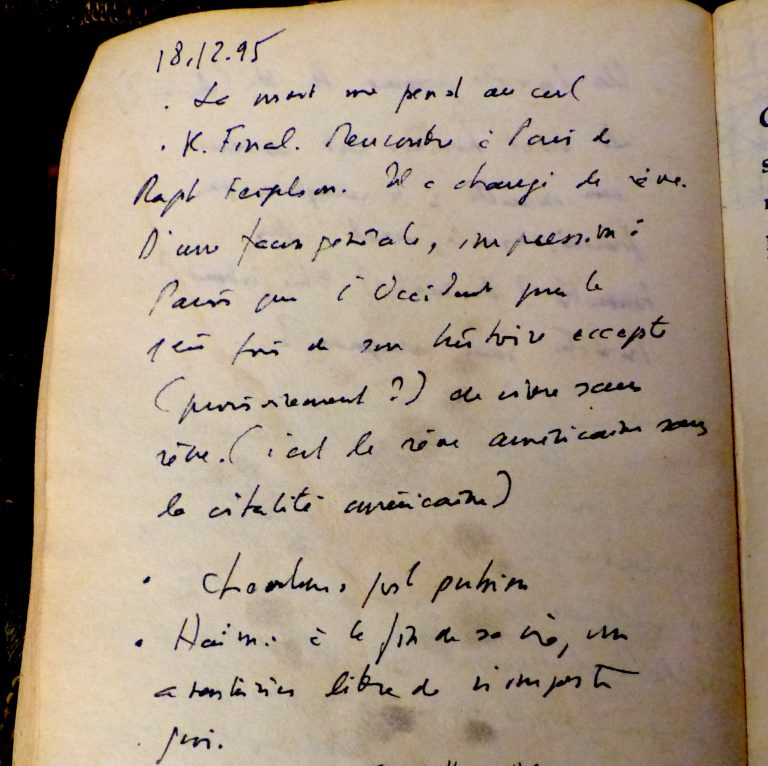 18.12.95
. La mort me pend au cul
. K. Final. Rencontre à Paris de
Il a changé de rêve.
D'une façon générale, impression à
Paris que l'Occident pour la
1ère fois de son histoire accepte
(provisoirement ?) de vivre sans
rêve. (c'est le rêve américain sans
la vitalité américaine)
.
. Haïm. à la fin de sa vie, un
aventurier libre de n'importe
quoi.